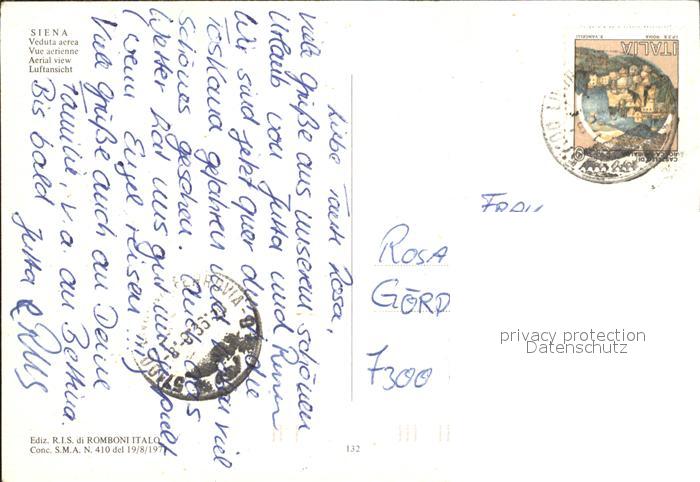 SIENA
Veduta aerea
Vue aérienne
Aerial view
Luftansicht
Liebe Tante Rosa,
viele Grüße aus unserem schönen
Urlaub von Jutta und
Wir sind jetzt quer durch die
Toskana gefahren und haben viel
schönes gesehen. Auch das
Wetter hat uns gut mitgespielt
(wenn Engel reisen ...!!)
Viele Grüße auch an Deine
Familie, v.a. an Bettina.
Bis bald Jutta &
Ediz. R.I.S. di ROMBONI ITALO
Conc. S.M.A. N. 410 del 19/8/197
132
ITALIA
FERROVIA
FRAU
ROSA
GÖRD
7300
privacy protection
Datenschutz